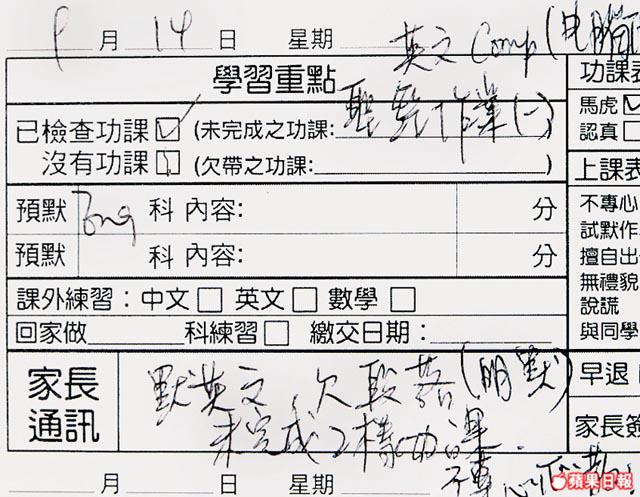 9 月 14 日 星期 英文 Comp (电腦
學習重點 功課表
已檢查功課 ☑ (未完成之功課: 聖經作業(一) 馬虎 ☑
沒有功課 ☐ (欠帶之功課: 認真 ☐
上課表
預默 Eng 科 內容: 分 不專心
試默作
預默 科 內容: 分 擅自出
無禮貌
課外練習：中文 ☐ 英文 ☐ 數學 ☐ 說謊
回家做 科練習 ☐ 繳交日期： 與同學
家長通訊 默英文 欠 (明默) 早退
未完成2樣功課 家長簽
月 日 星期 不專心
蘋果日報